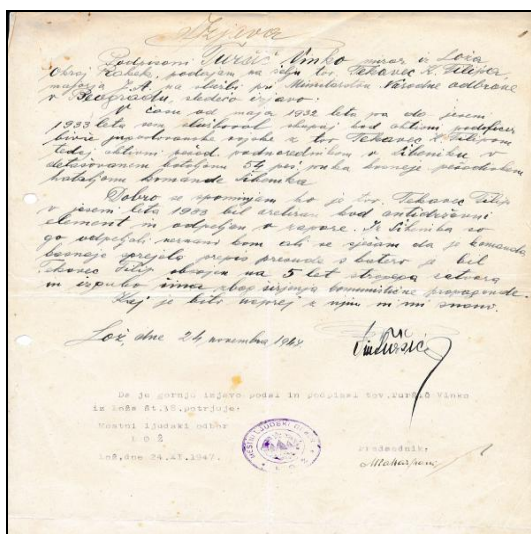 Izjava
Podpisani Turšič Vinko mizar iz Loža
Okraj Rakek, podajam na željo tov. Tekavec K. Filipa,
majorja J.A. na službi pri Ministarstvu Narodne odbrane
v Beogradu, sledečo izjavo.
V času od maja 1932 leta pa do jeseni
1933 leta sem služboval skupaj kod aktivni podoficer
bivše jugoslovanske vojske z tov. Tekavec K. Filipom
tedaj aktivni podnarednikom v Šibeniku v
bataljonu 54 peš. puka kasneje
bataljonu komande Šibenika
Dobro se spominjam ko je tov. Tekavec Filip
v jeseni leta 1933 bil aretiran kod antidržavni
element in odpeljan v zapore. Iz Šibenika so
ga odpeljali neznano kam ali se sjećam da je komanda
kasneje sprejela prepis presude s katero je bil
Tekavec Filip obsojen na 5 let strogega zatvora
in izgubo čina zbog širjenja komunistične propagande.
Kaj je bilo naprej z njim mi ni znano.
Lož, dne 24 novembra 1947
Da je gornjo izjavo podal in podpisal tov. Turšič Vinko
iz Loža št.38. potrjuje:
Mestni ljudski odbor
LOŽ
Lož, dne 24.XI.1947.
MESTNI LJUDSKI ODBOR
LOŽ
Predsednik: